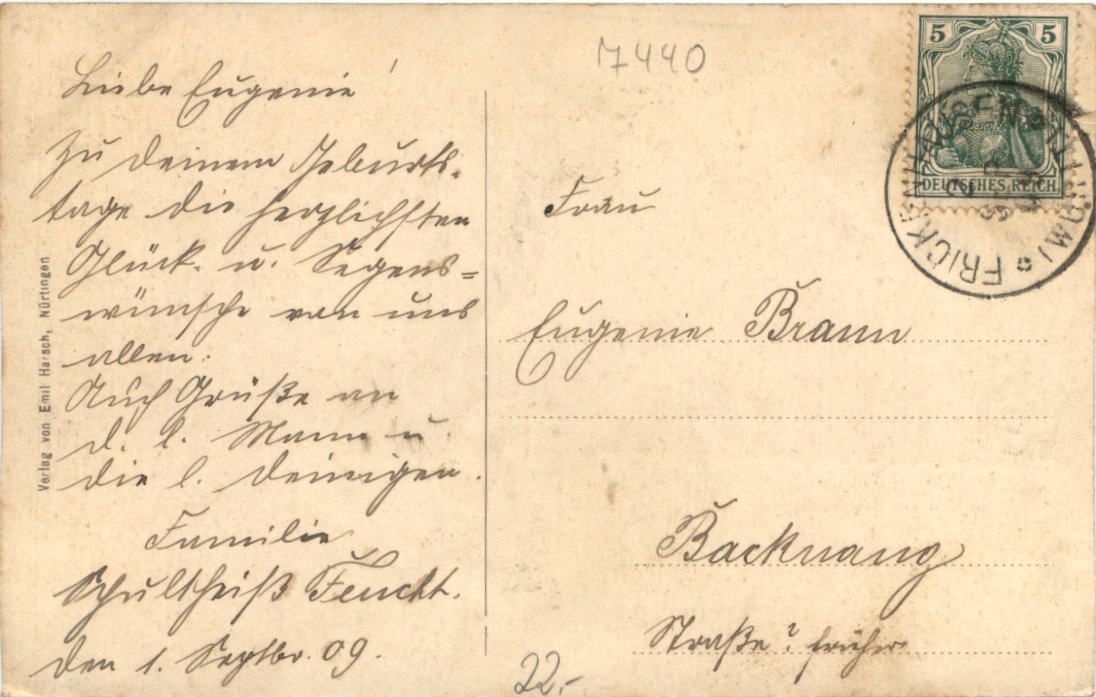 7440
5 5
DEUTSCHES REICH
FRICKENHAUSEN
Liebe Eugenie!
Zu deinem Geburts-
tage die herzlichsten
Glück- u. Segens=
wünsche von uns
allen.
Auch Grüße an
d. l. Mann u.
die l. Deinigen.
Familie
Schultheiß Feucht.
den 1. Septbr. 09.
Verlag von Emil Harsch, Nürtingen
Frau
Eugenie Braun
Backnang
Straße? früher
22.-